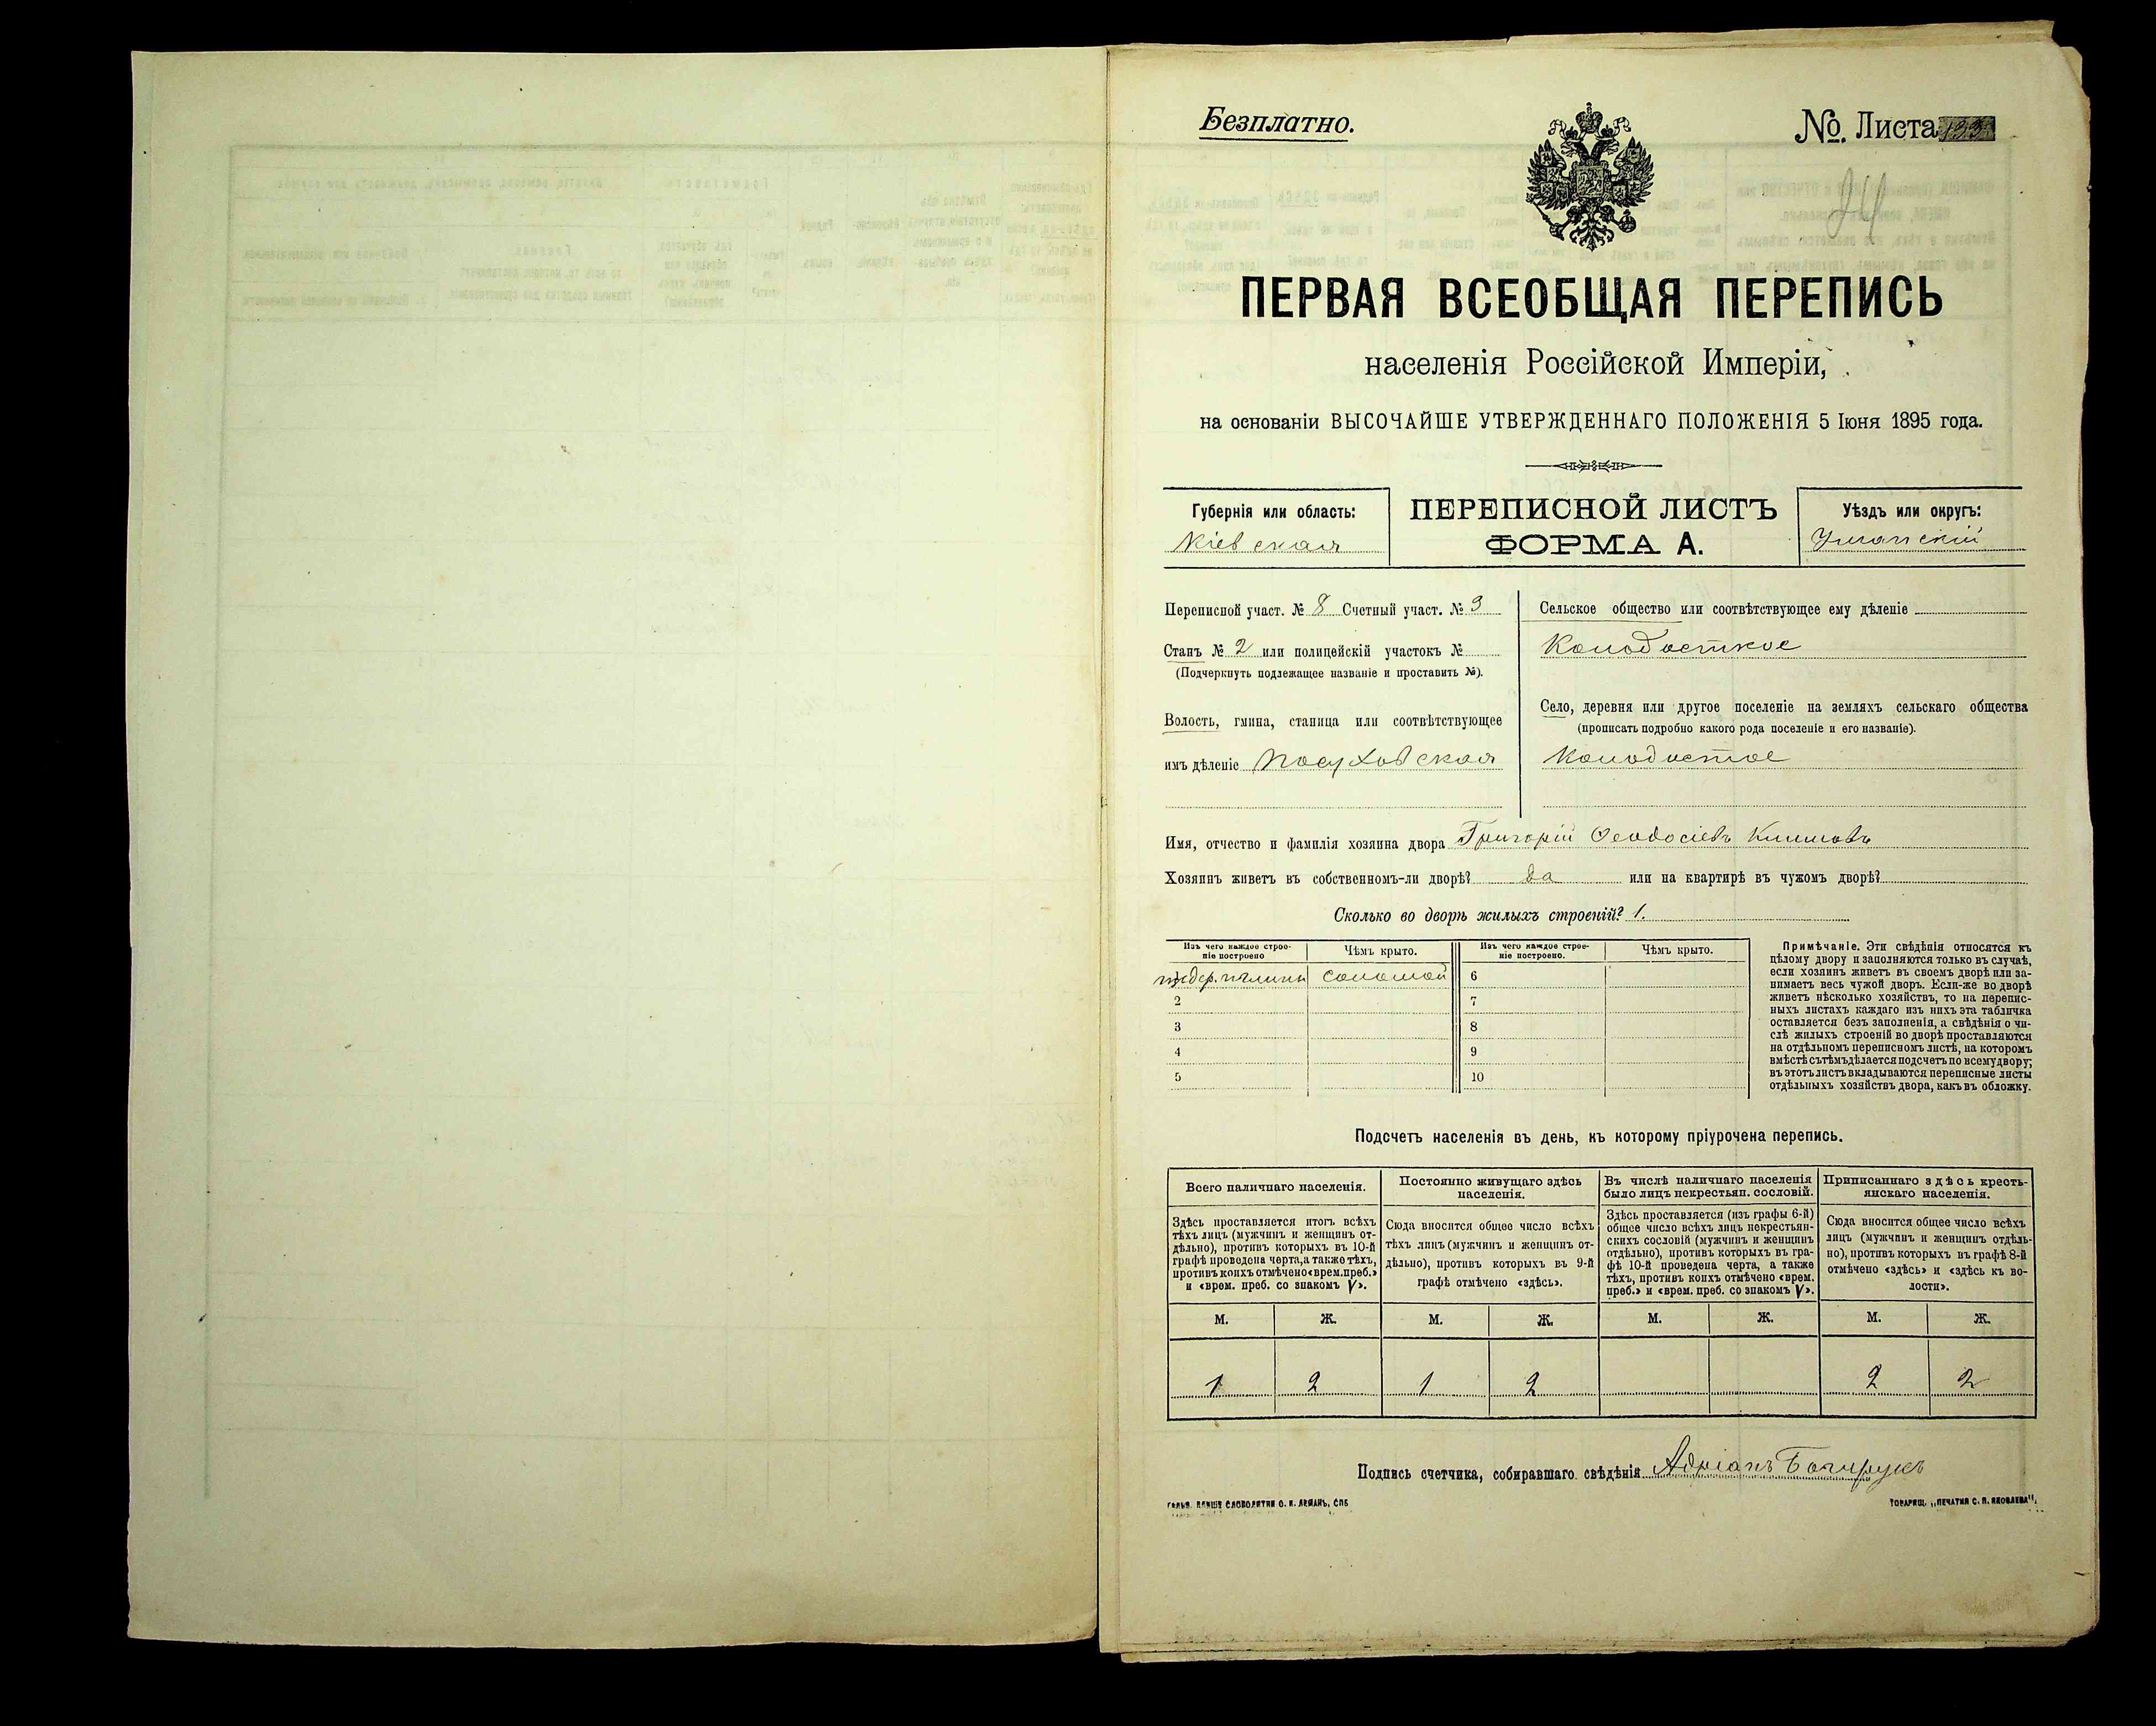 Безплатно.
№. Листа 133
24
ПЕРВАЯ ВСЕОБЩАЯ ПЕРЕПИСЬ
населенія Россійской Имперіи,
на основаніи ВЫСОЧАЙШЕ УТВЕРЖДЕННАГО ПОЛОЖЕНІЯ 5 Іюня 1895 года.
Губернія или область:
Кіевская
ПЕРЕПИСНОЙ ЛИСТЪ
ФОРМА А.
Уѣздъ или округъ:
Уманскій
Переписной участ. № 8 Счетный участ. № 3
Станъ № 2 или полицейскій участокъ №
(Подчеркнуть подлежащее названіе и проставить №).
Волость, гмина, станица или соотвѣтствующее
имъ дѣленіе Посуховская
Сельское общество или соотвѣтствующее ему дѣленіе
Колодисткое
Село, деревня или другое поселеніе на земляхъ сельскаго общества
(прописать подробно какого рода поселеніе и его названіе).
Колодистое
Имя, отчество и фамилія хозяина двора Григорій Феодосіевъ Климовъ
Хозяинъ живетъ въ собственномъ-ли дворѣ? да или на квартирѣ въ чужомъ дворѣ?
Сколько во дворѣ жилыхъ строеній? 1.
Изъ чего каждое строе-
ніе построено
Чѣмъ крыто.
Изъ чего каждое строе-
ніе построено.
Чѣмъ крыто.
из дер. и глины соломой 6
2 7
3 8
4 9
5 10
Примѣчаніе. Эти свѣдѣнія относятся къ
цѣлому двору и заполняются только въ случаѣ,
если хозяинъ живетъ въ своемъ дворѣ или за-
нимаетъ весь чужой дворъ. Если-же во дворѣ
живетъ нѣсколько хозяйствъ, то на перепис-
ныхъ листахъ каждаго изъ нихъ эта табличка
оставляется безъ заполненія, а свѣдѣнія о чи-
слѣ жилыхъ строеній во дворѣ проставляются
на отдѣльномъ переписномъ листѣ, на которомъ
вмѣстѣ съ тѣмъ дѣлается подсчетъ по всему двору;
въ этотъ листъ вкладываются переписные листы
отдѣльныхъ хозяйствъ двора, какъ въ обложку.
Подсчетъ населенія въ день, къ которому пріурочена перепись.
Всего наличнаго населенія.
Постоянно живущаго здѣсь
населенія.
Въ числѣ наличнаго населенія
было лицъ некрестьян. сословій.
Приписаннаго здѣсь кресть-
янскаго населенія.
Здѣсь проставляется итогъ всѣхъ
тѣхъ лицъ (мужчинъ и женщинъ от-
дѣльно), противъ которыхъ въ 10-й
графѣ проведена черта, а также тѣхъ,
противъ коихъ отмѣчено «врем. преб.»
и «врем. преб. со знакомъ V».
Сюда вносится общее число всѣхъ
тѣхъ лицъ (мужчинъ и женщинъ от-
дѣльно), противъ которыхъ въ 9-й
графѣ отмѣчено «здѣсь».
Здѣсь проставляется (изъ графы 6-й)
общее число всѣхъ лицъ некрестьян-
скихъ сословій (мужчинъ и женщинъ
отдѣльно), противъ которыхъ въ гра-
фѣ 10-й проведена черта, а также
тѣхъ, противъ коихъ отмѣчено «врем.
преб.» и «врем. преб. со знакомъ V».
Сюда вносится общее число всѣхъ
лицъ (мужчинъ и женщинъ отдѣль-
но), противъ которыхъ въ графѣ 8-й
отмѣчено «здѣсь» и «здѣсь къ во-
лости».
М. Ж. М. Ж. М. Ж. М. Ж.
1 2 1 2 2 2
Подпись счетчика, собиравшаго свѣдѣнія Адріанъ
ТОВАРИЩ. „ПЕЧАТНЯ С. П. ЯКОВЛЕВА".